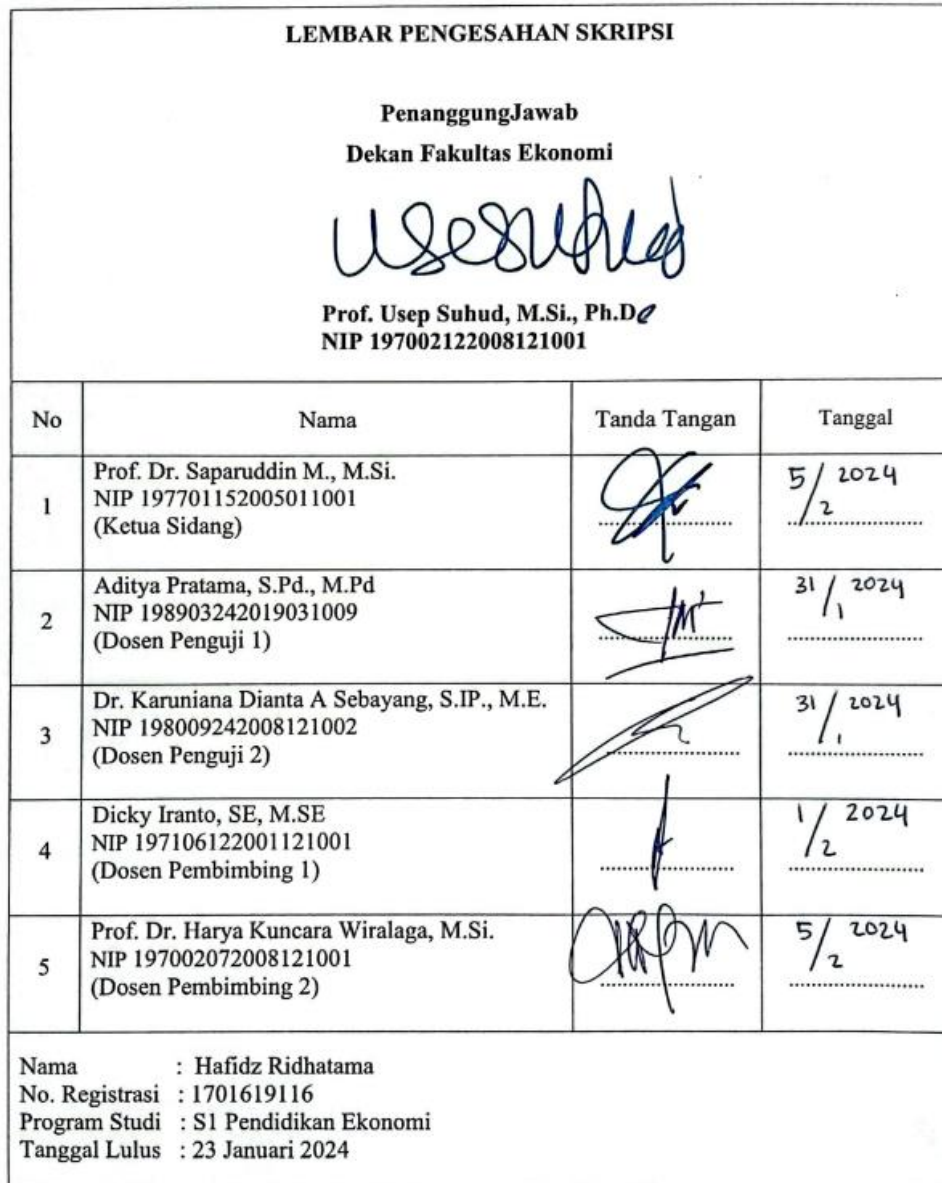 LEMBAR PENGESAHAN SKRIPSI
PenanggungJawab
Dekan Fakultas Ekonomi
Prof. Usep Suhud, M.Si., Ph.D
NIP 197002122008121001
No Nama Tanda Tangan Tanggal
Prof. Dr. Saparuddin M., M.Si.
1 NIP 197701152005011001 5/2 2024
(Ketua Sidang)
Aditya Pratama, S.Pd., M.Pd
2 NIP 198903242019031009 31/1 2024
(Dosen Penguji 1)
Dr. Karuniana Dianta A Sebayang, S.IP., M.E.
3 NIP 198009242008121002 31/1 2024
(Dosen Penguji 2)
Dicky Iranto, SE, M.SE
4 NIP 197106122001121001 1/2 2024
(Dosen Pembimbing 1)
Prof. Dr. Harya Kuncara Wiralaga, M.Si.
5 NIP 197002072008121001 5/2 2024
(Dosen Pembimbing 2)
Nama : Hafidz Ridhatama
No. Registrasi : 1701619116
Program Studi : S1 Pendidikan Ekonomi
Tanggal Lulus : 23 Januari 2024